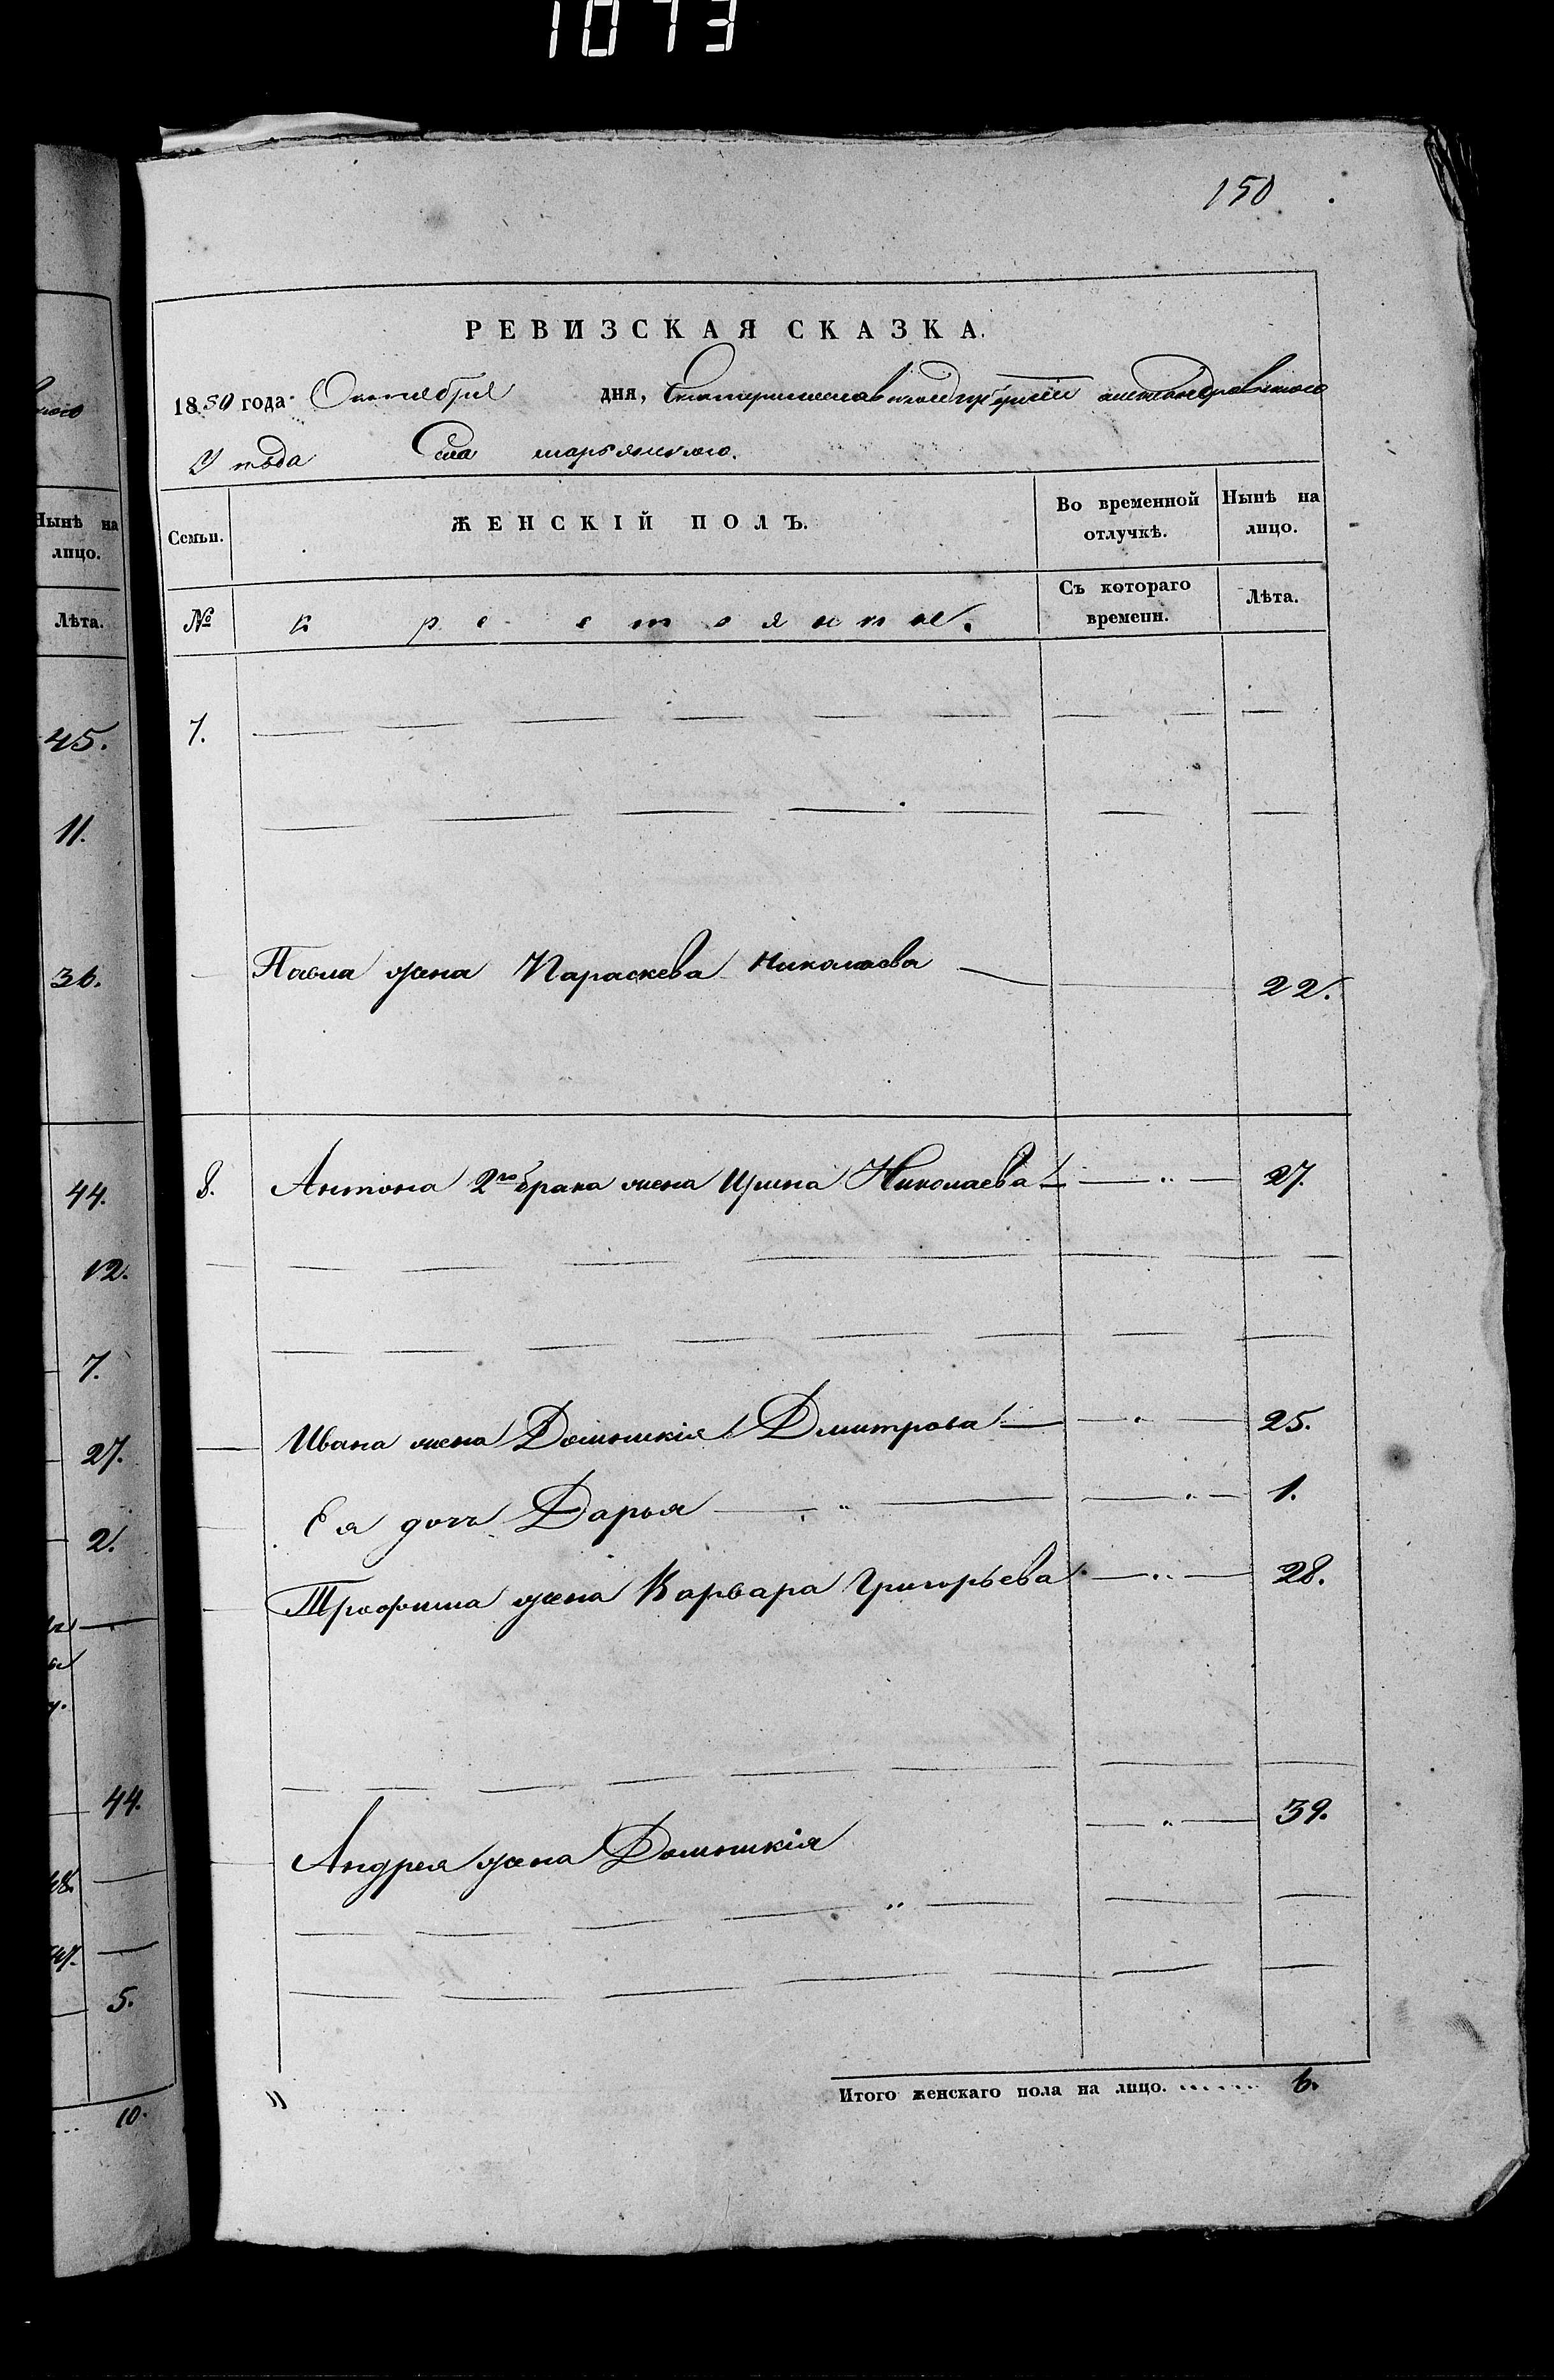 1073
150
РЕВИЗСКАЯ СКАЗКА.
1850 года Октября дня, Екатеринославской губернии Александровского
Уѣзда Села Марьянского.
Семьи. ЖЕНСКІЙ ПОЛЪ. Во временной отлучкѣ. Нынѣ на лицо.
№ крестоянкые. Съ котораго времени. Лѣта.
7.
Павла жена Параскева Николаева 22.
8. Антона 2го брака жена Ирина Николаева 27.
Ивана жена Домникія Дмитрова 25.
Ея дочь Дарья 1.
Трофима жена Варвара Григорьева 28.
Андрея жена Домникія 39.
Итого женскаго пола на лицо. ....... 6.
Нынѣ на
лицо.
Лѣта.
45.
11.
36.
44.
12.
7.
27.
2.
44.
48.
47.
5.
10.